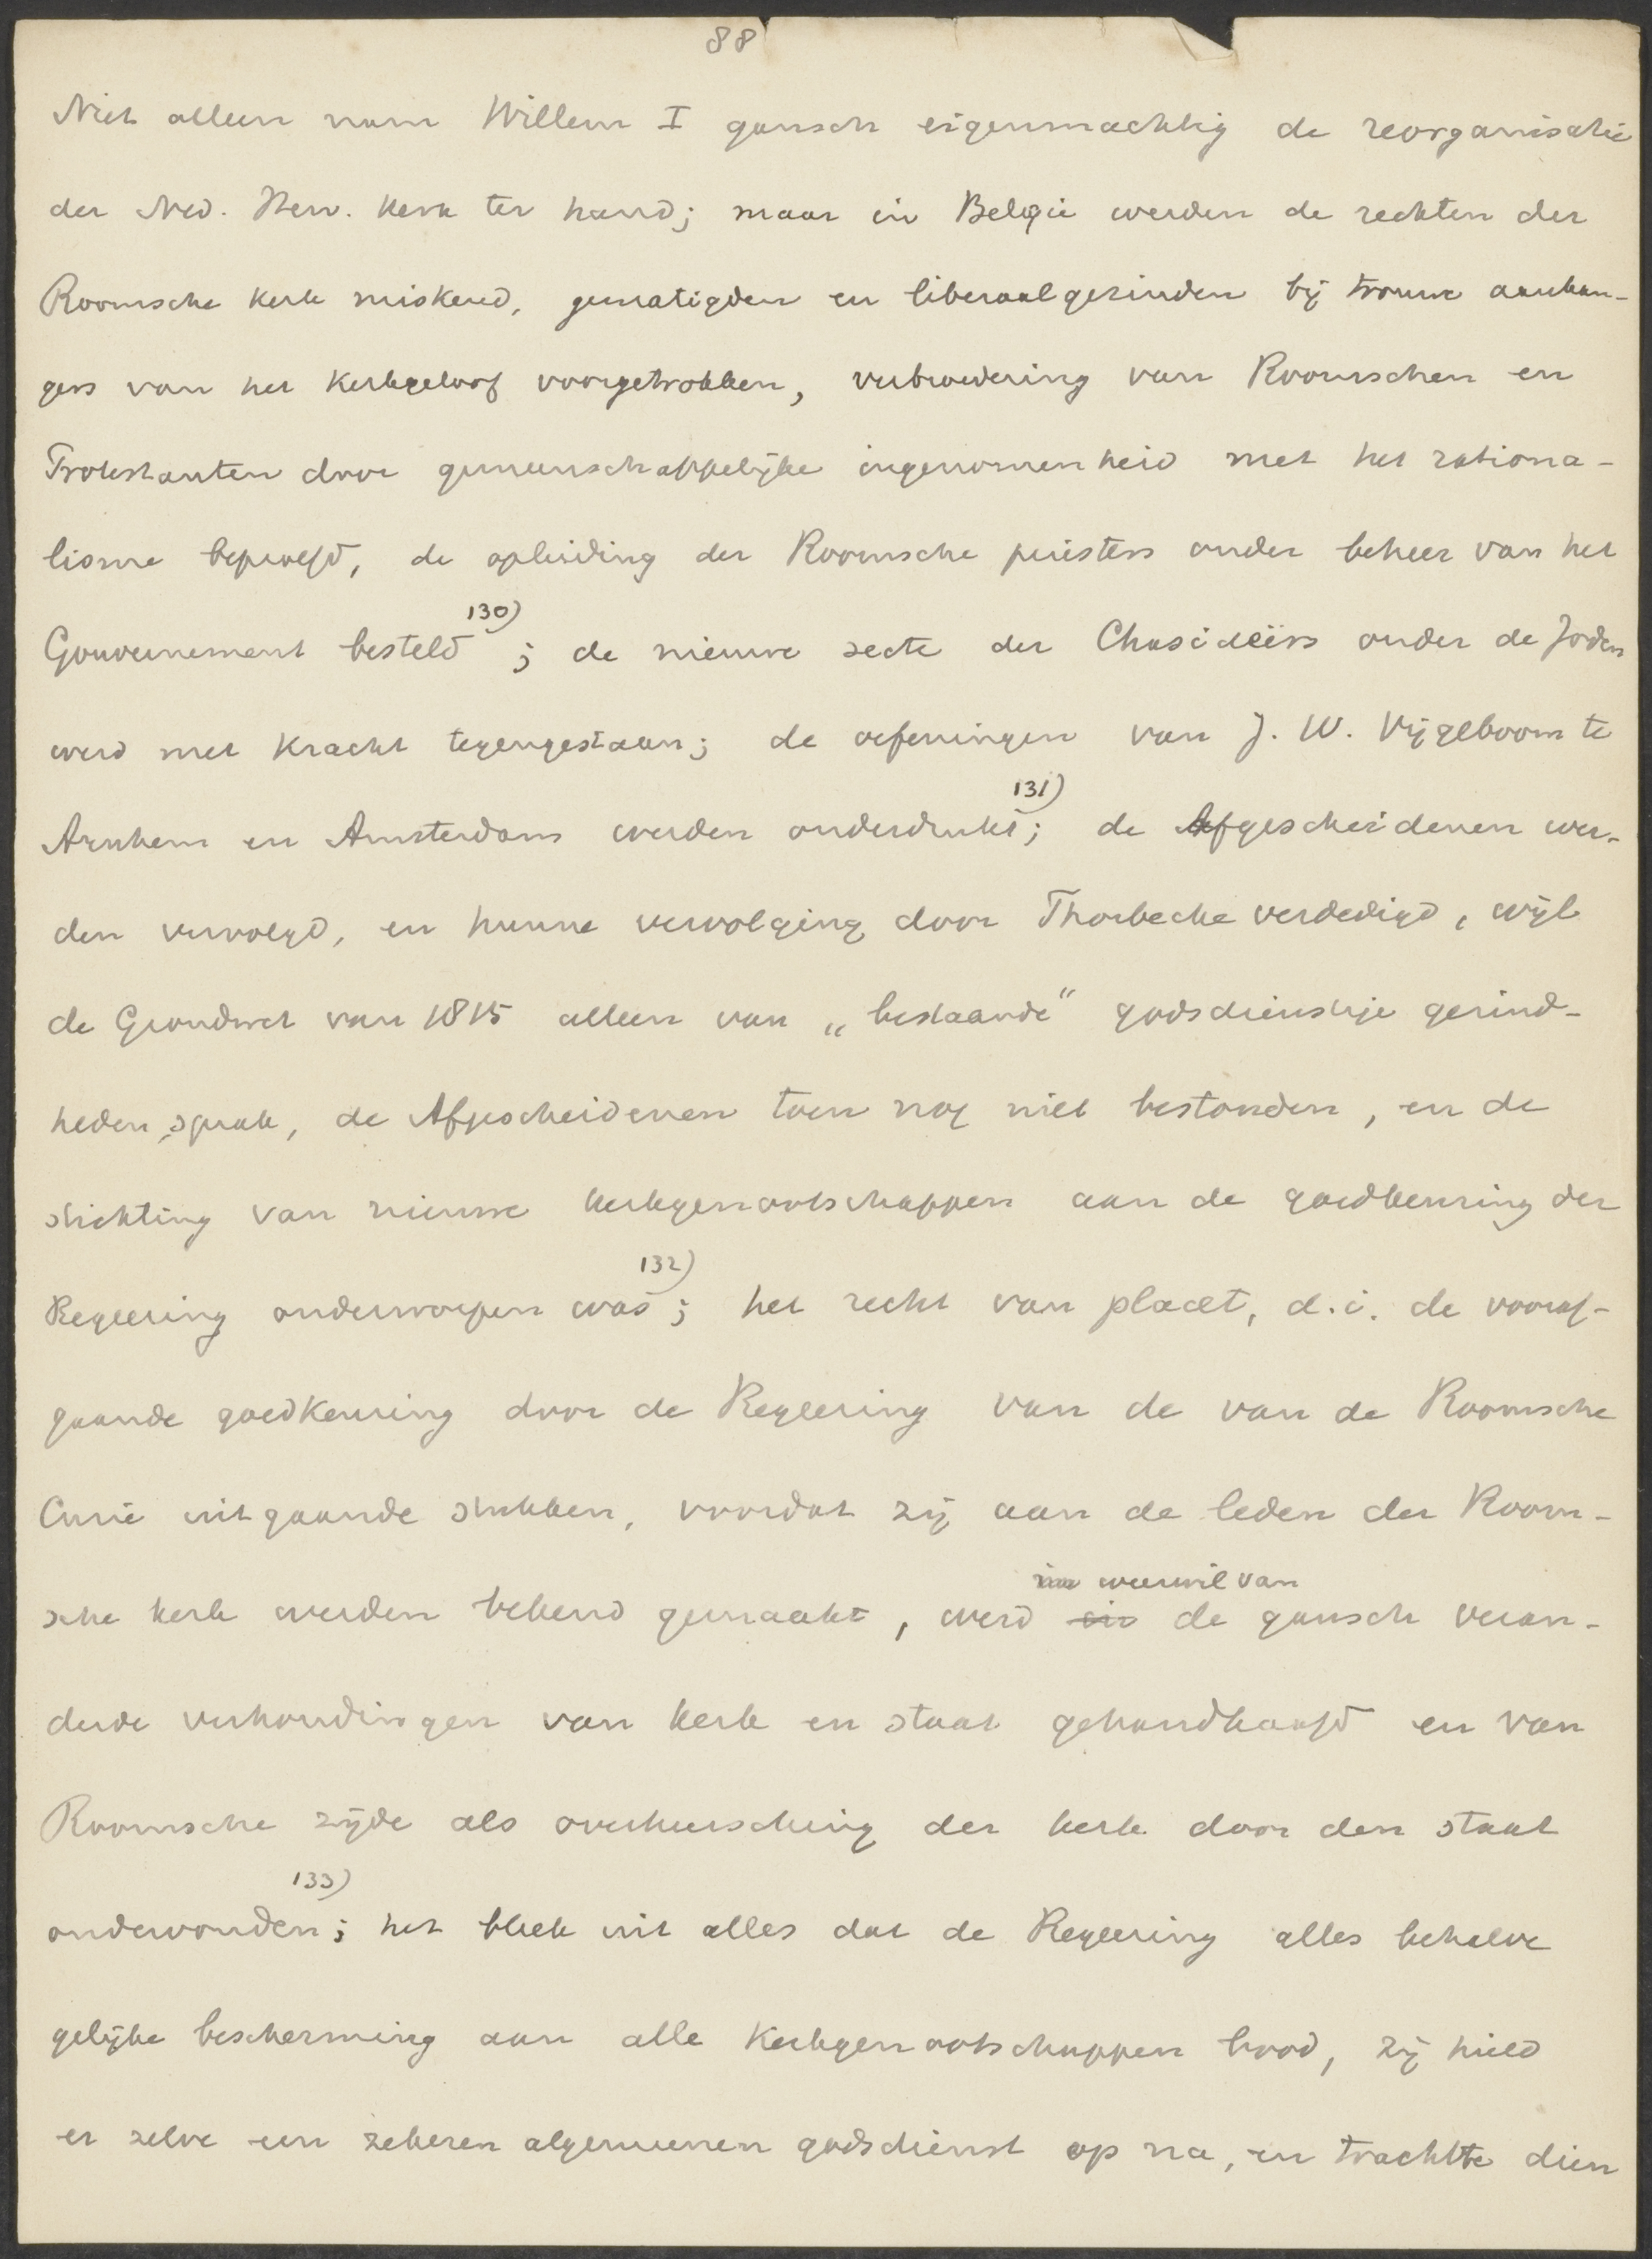 88
Niet alleen nam Willem I gansch eigenmachtig de reorganisatie
der Ned. Herv. Kerk ter hand; maar in België werden de rechten der
Roomsche kerk miskend, gematigden en liberaalgezinden bij trouwe aanhan-
gers van het kerkgeloof voorgetrokken, verbroedering van Roomschen en
Protestanten door gemeenschappelijke ingenomenheid met het rationa-
lisme beproefd, de opleiding der Roomsche priesters onder beheer van het
Gouvernement besteld 130) ; de nieuwe secte der Chasideërs onder de Joden
werd met kracht tegengestaan; de oefeningen van J. W. Vijgeboom te
Arnhem en Amsterdam werden onderdrukt 131) ; de Afgescheidenen wer-
den vervolgd, en hunne vervolging door Thorbecke verdedigd, wijl
de Grondwet van 1815 alleen van „bestaande" godsdienstige gezind-
heden sprak, de Afgescheidenen toen nog niet bestonden, en de
stichting van nieuwe kerkgenootschappen aan de goedkeuring der
Regeering onderworpen was 132) ; het recht van placet, d.i. de vooraf-
gaande goedkeuring door de Regeering van de van de Roomsche
Curie uitgaande stukken, voordat zij aan de leden der Room-
in weerwil van
sche kerk werden bekend gemaakt, werd in de gansch veran-
derde verhoudingen van kerk en staat gehandhaafd en van
Roomsche zijde als overheersching der kerk door den staat
ondervonden 133) ; het bleek uit alles dat de Regeering alles behalve
gelijke bescherming aan alle Kerkgenootschappen bood, zij hield
er zelve een zekeren algemeenen godsdienst op na, en trachtte dien